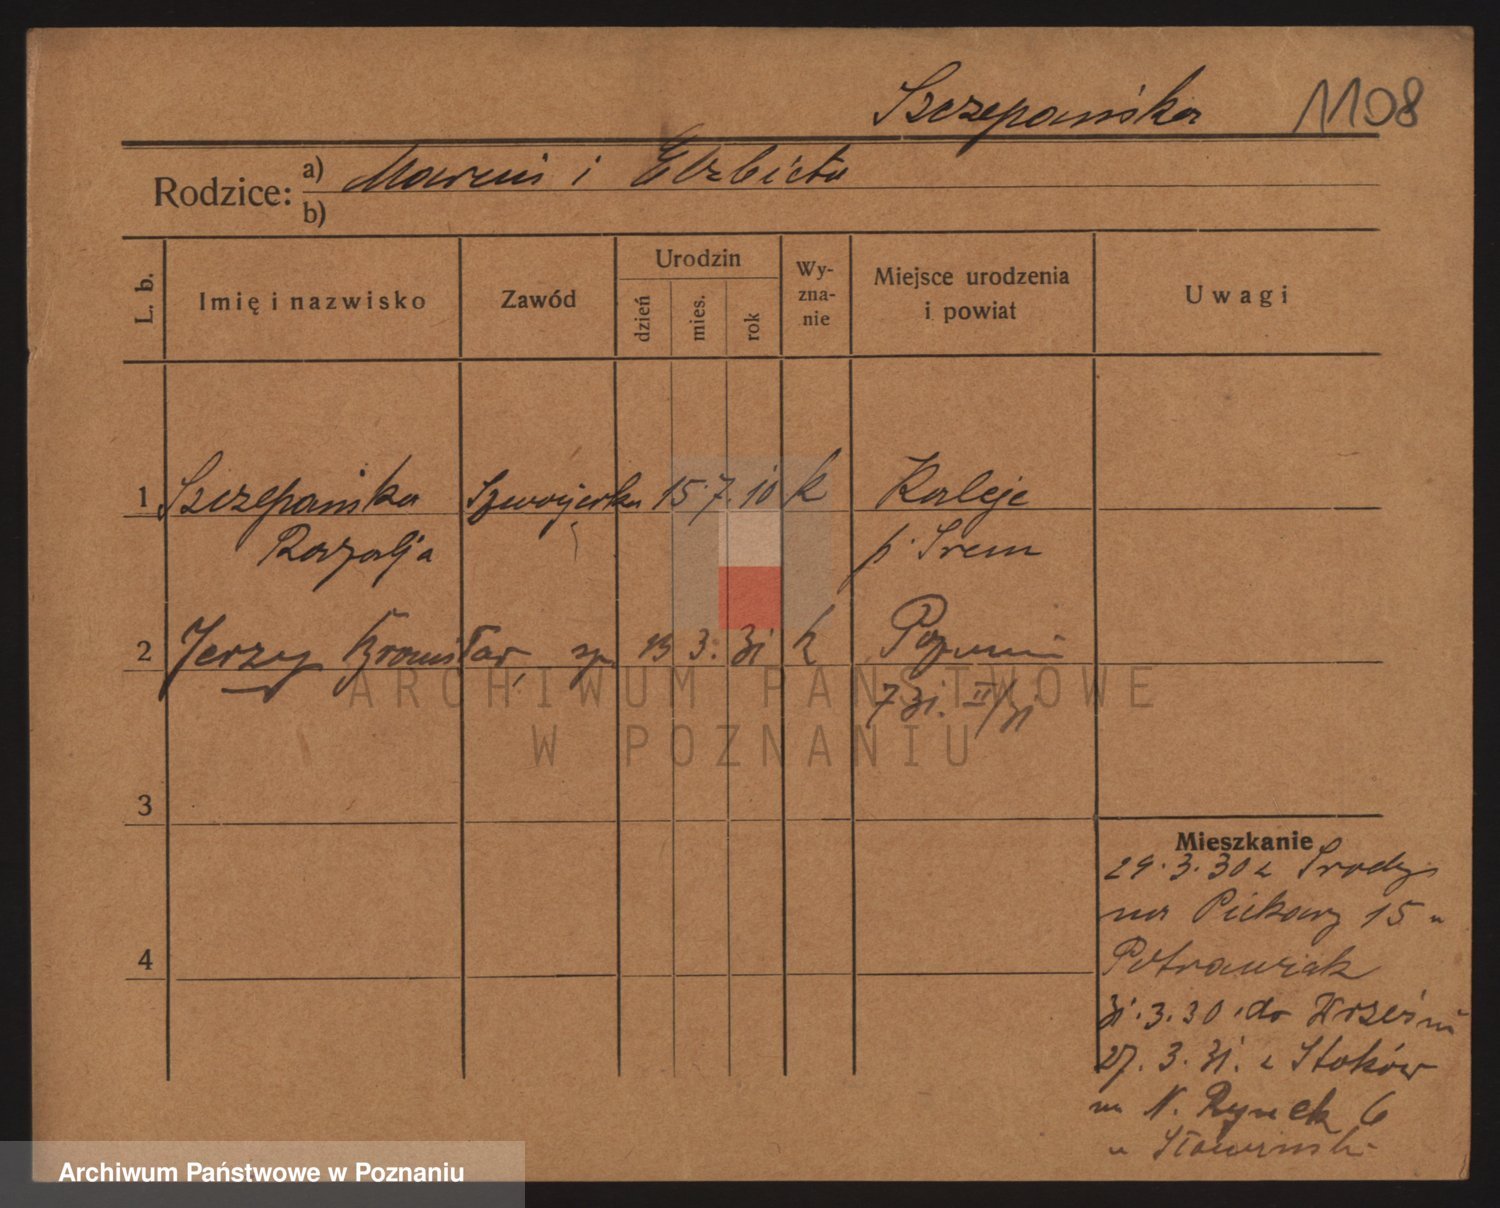 Szczepańska 1108
Rodzice: a) Marcin i Elżbieta
b)
L. b. Imię i nazwisko Zawód Urodzin dzień mies. rok Wy-zna-nie Miejsce urodzenia i powiat Uwagi
1 Szczepańska Szwajerka 15 7. 10 k Kaleje
Rozalja p. Śrem
2 Jerzy Bronisław, sp. 13 3. 31 k Poznań
7 31. II/31
ARCHIWUM PAŃSTWOWE
W POZNANIU
3
Mieszkanie
29.3.30 z Środy
na Piekary 15 u
4
Potrawiak
31.3.30 do Wrześni
27.3.31. z Stoków
na N. Rynek 6
u Sławinski
Archiwum Państwowe w Poznaniu